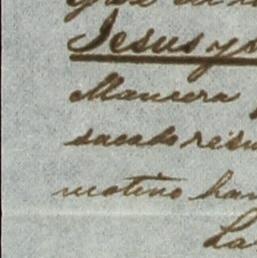 Jesus y
Manera
sacado resu
motivo han
La